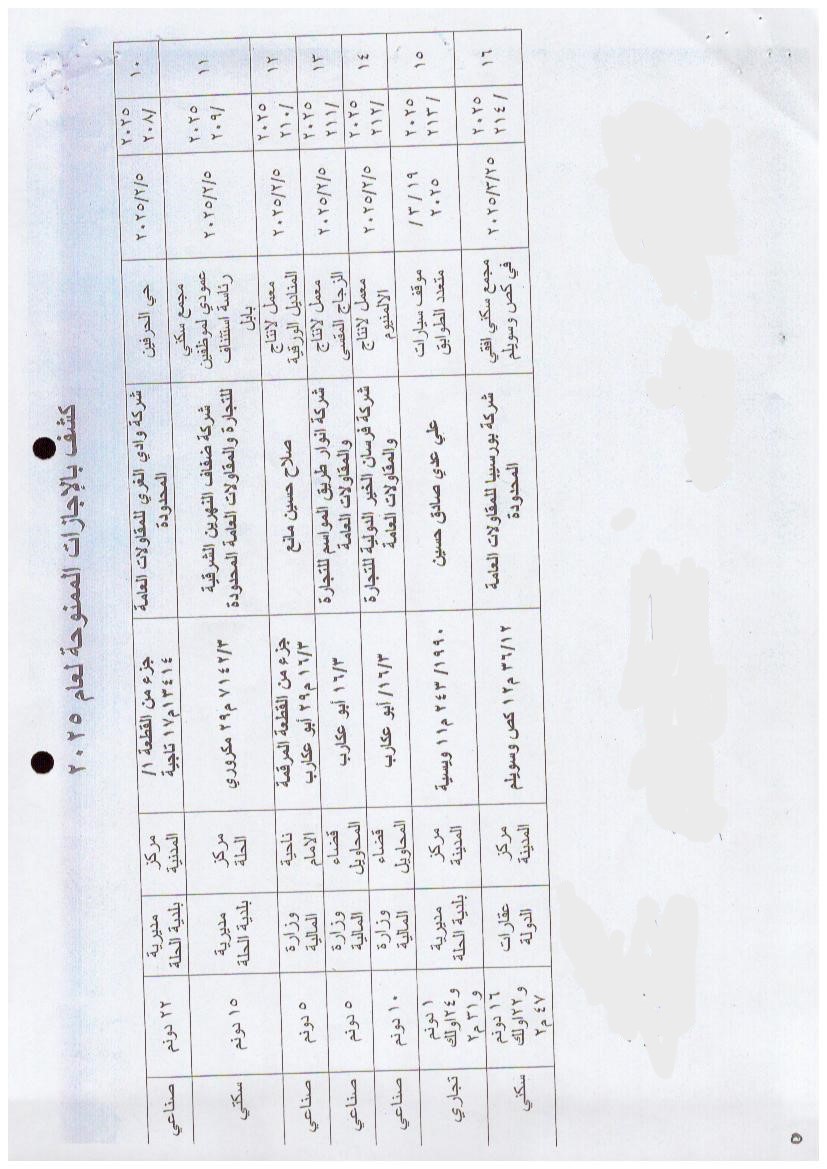 كشف بالإجازات الممنوحة لعام ٢٠٢٥
١٠
٢٠٢٥
/٢٠٨
٢٠٢٥/٢/٥
حي الحرفين
شركة وادي الغري للمقاولات العامة
المحدودة
جزء من القطعة ١/
١٣٤١٤م١٧ تاجية
مركز
المدنية
مديرية
بلدية الحلة
٢٢ دونم
صناعي
١١
٢٠٢٥
/٢٠٩
٢٠٢٥/٢/٥
مجمع سكني
عمودي لموظفين
رئاسة استئناف
بابل
شركة ضفاف النهرين الشرقية
للتجارة والمقاولات العامة المحدودة
٧١٤٢/٣ م٢٩ مكروري
مركز
الحلة
مديرية
بلدية الحلة
١٥ دونم
سكني
١٢
٢٠٢٥
/٢١٠
٢٠٢٥/٢/٥
معمل لانتاج
المناديل الورقية
صلاح حسين مانع
جزء من القطعة المرقمة
١٦/٣ م٢٩ أبو عكارب
ناحية
الامام
وزارة
المالية
٥ دونم
صناعي
١٣
٢٠٢٥
/٢١١
٢٠٢٥/٢/٥
معمل لانتاج
الزجاج المقسى
شركة انوار طريق المواسم للتجارة
والمقاولات العامة
١٦/٣ أبو عكارب
قضاء
المحاويل
وزارة
المالية
٥ دونم
صناعي
١٤
٢٠٢٥
/٢١٢
٢٠٢٥/٢/٥
معمل لانتاج
الالمنيوم
شركة فرسان الخير الدولية للتجارة
والمقاولات العامة
١٦/٣/ أبو عكارب
قضاء
المحاويل
وزارة
المالية
١٠ دونم
صناعي
١٥
٢٠٢٥
/٢١٣
١٩ /٣ /
٢٠٢٥
موقف سيارات
متعدد الطوابق
علي عدي صادق حسين
١٩٩٠/ ٢٤٣ م١١ ويسية
مركز
المدينة
مديرية
بلدية الحلة
١ دونم
و٢٤اولك
و٣١ م٢
تجاري
١٦
٢٠٢٥
/٢١٤
٢٠٢٥/٣/٢٥
مجمع سكني افقي
في كص وسويلم
شركة بورسيبا للمقاولات العامة
المحدودة
٣٦/١٢ م١٢ كص وسويلم
مركز
المدينة
عقارات
الدولة
١٦ دونم
و٢٢اولك
٤٧ م٢
سكني
٥